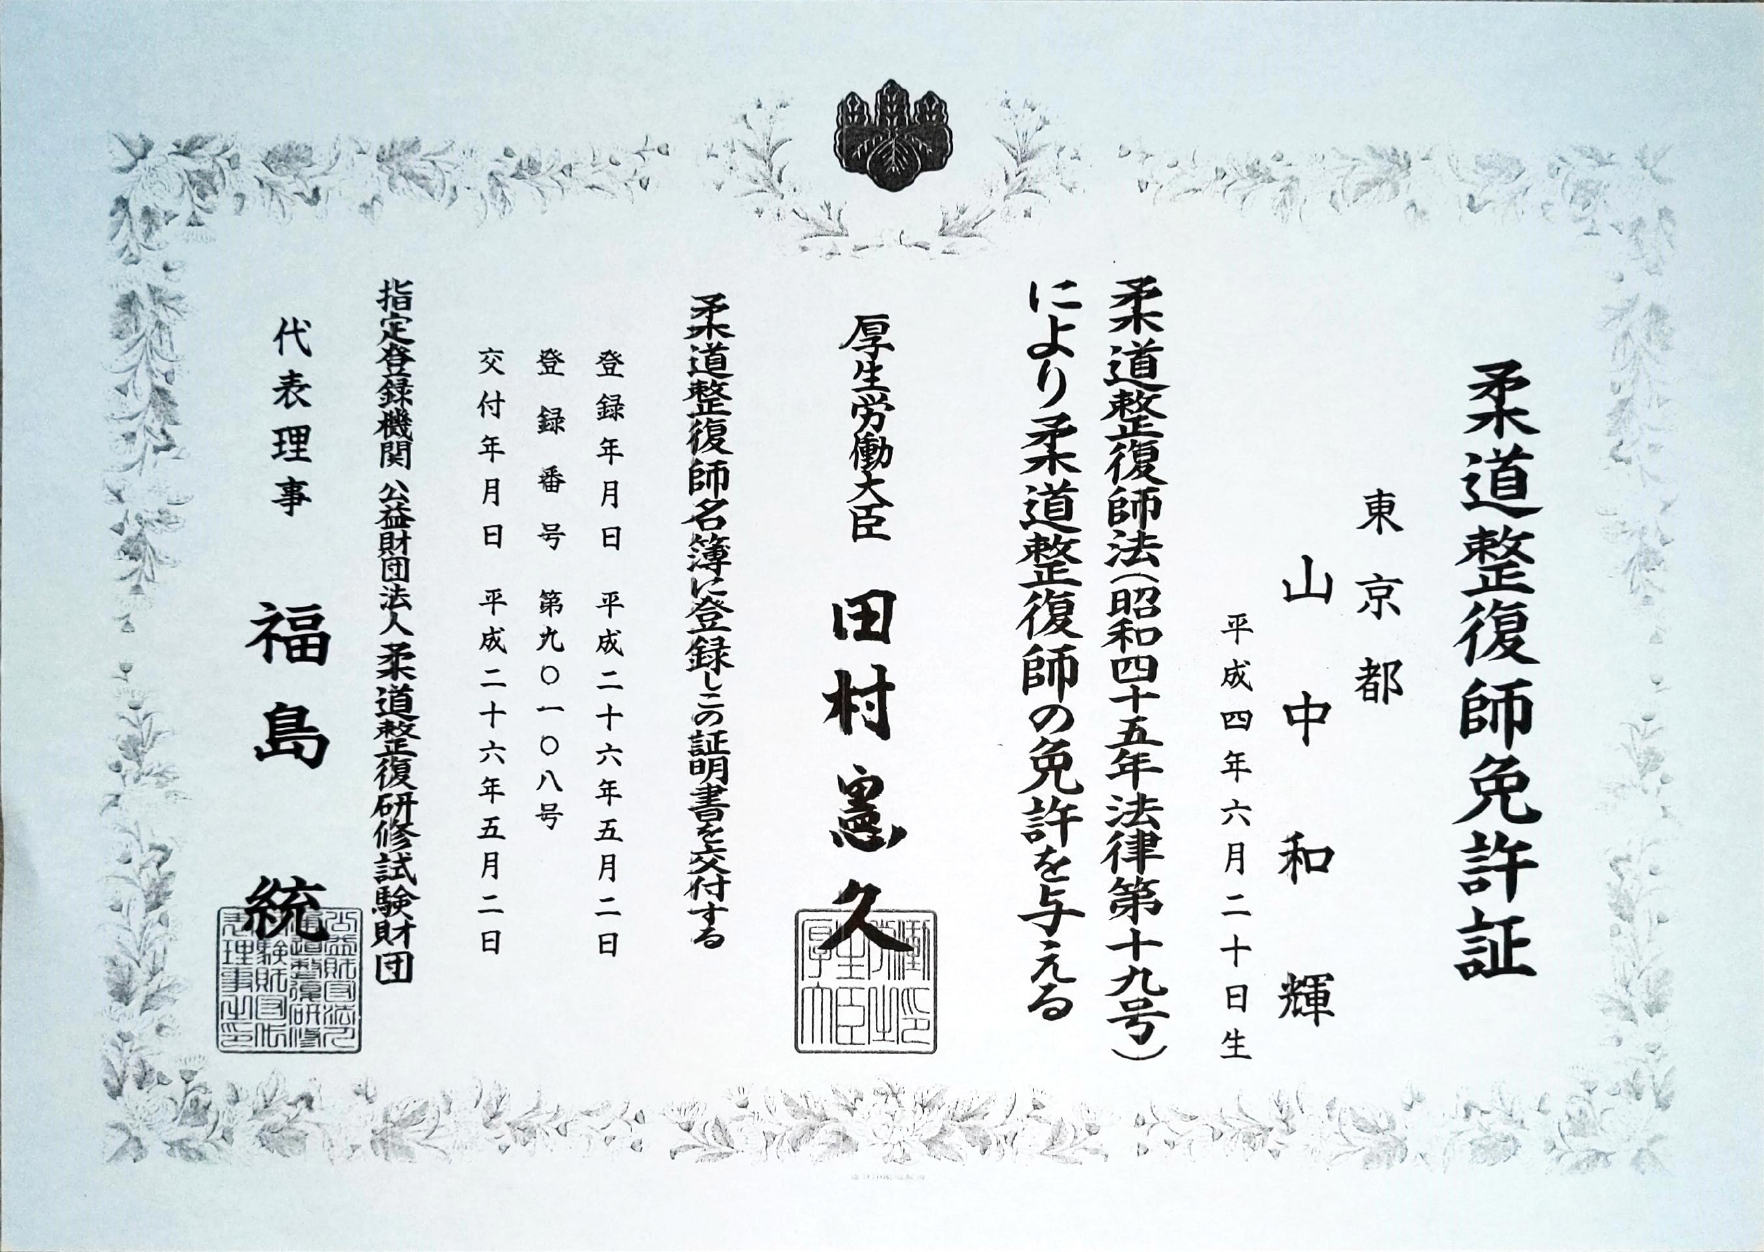 柔道整復師免許証
東京都
山中和輝
平成四年六月二十日生
柔道整復師法(昭和四十五年法律第十九号)
により柔道整復師の免許を与える
厚生労働大臣 田村憲久
柔道整復師名簿に登録しこの証明書を交付する
登録年月日 平成二十六年五月二日
登録番号 第九〇一〇八号
交付年月日 平成二十六年五月二日
指定登録機関 公益財団法人 柔道整復研修試験財団
代表理事 福島 統